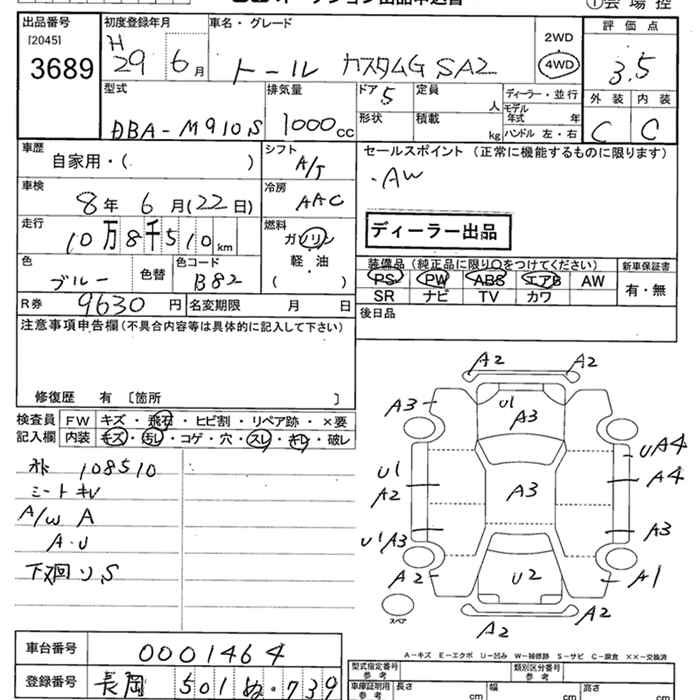 オークション出品申込書
①会場控
出品番号 [2045] 3689
初度登録年月 H 29 6月
車名・グレード トール カスタムG SA2
2WD 4WD
評価点 3.5
外装 内装 C C
型式 DBA-M910S
排気量 1000cc
ドア 5 形状
定員 人 積載 kg
ディーラー・並行 モデル年式 年 ハンドル 左・右
車歴 自家用・( )
シフト A/T
セールスポイント (正常に機能するものに限ります)
・AW
車検 8年 6月(22日)
冷房 AAC
走行 10万8千510km
燃料 ガソリン 軽・油 ( )
ディーラー出品
色 ブルー 色替
色コード B82
装備品 (純正品に限り○をつけてください) 新車保証書
PS PW ABS エアB AW 有・無
SR ナビ TV カワ
R券 9630円 名変期限 月 日
後日品
注意事項申告欄 (不具合内容等は具体的に記入して下さい)
修復歴 有 [箇所 ]
検査員記入欄
FW キズ・飛石・ヒビ割・リペア跡・×要
内装 キズ・汚レ・コゲ・穴・スレ・キレ・破レ
108510
A/W A
A・U
下廻り S
A2 A2
A3 U1 A3
UA4
U1 A2 A3 A4
U1A3 A3
A2 U2 A1
スペア
A2 A2
A−キズ E−エクボ U−凹み W−補修跡 S−サビ C−腐食 ××−交換済
車台番号 0001464
登録番号 長岡 501 ぬ・739
型式指定番号 参考
類別区分番号 参考
車庫証明用 参考 長さ cm 幅 cm 高さ cm